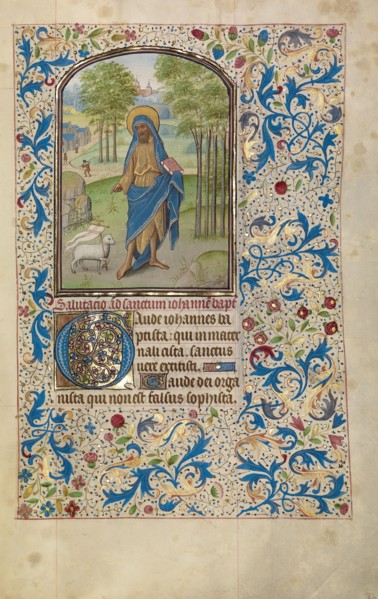 Salutacio ad sanctum iohannē bapt
Gaude iohannes ba
ptista: qui in mater
nali cista. sanctus
uere extitisti.
Gaude dei orga
nista qui non est falsus sophista.